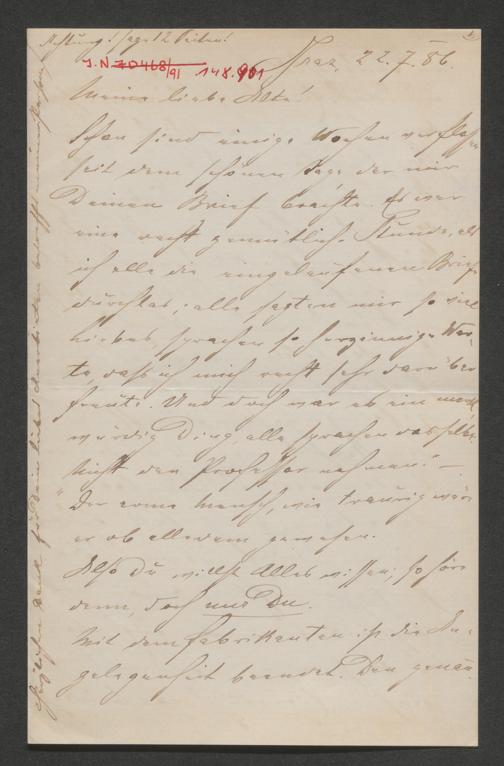 Achtung! sage 12 Seiten!
J.N. 70468/91 148.901
Graz 22.7.86.
Meine liebe Alte!
Schon sind einige Wochen verflossen
seit dem schönen Tage der mir
Deinen Brief brachte. Es war
eine recht gemütliche Stunde, als
ich alle die eingelaufenen Briefe
durchlas; alle sagten mir so viel
Liebes, sprachen so herzinnige Wor-
te, dass ich mich recht sehr darüber
freute. Und doch war es ein merk
würdig Ding alle sprachen dasselbe.
"Nicht den Professor nehmen!" –
Der arme Mensch, wie traurig wäre
er ob alledem gewesen.
Also Du willst Alles wissen; so höre
denn, doch nur Du.
Mit dem Fabrikanten ist die An-
gelegenheit beendet. Den genau
Herzlichen Dank für Deine lieben